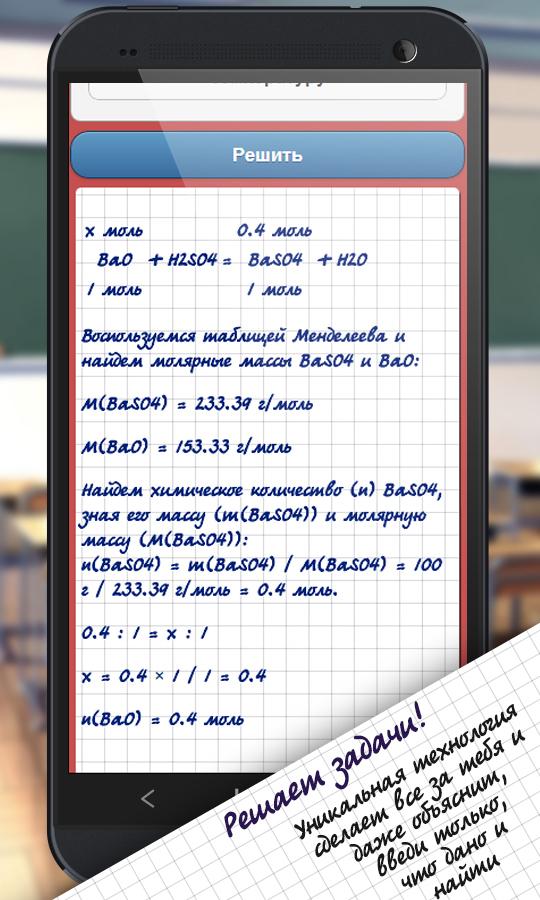 Решить
x моль 0.4 моль
BaO + H2SO4 = BaSO4 + H2O
1 моль 1 моль
Воспользуемся таблицей Менделеева и
найдем молярные массы BaSO4 и BaO:
M(BaSO4) = 233.39 г/моль
M(BaO) = 153.33 г/моль
Найдем химическое количество (n) BaSO4,
зная его массу (m(BaSO4)) и молярную
массу (M(BaSO4)):
n(BaSO4) = m(BaSO4) / M(BaSO4) = 100
г / 233.39 г/моль = 0.4 моль.
0.4 : 1 = x : 1
x = 0.4 × 1 / 1 = 0.4
n(BaO) = 0.4 моль
Решает задачи!
Уникальная технология
сделает все за тебя и
даже объяснит,
введи только,
что дано и
найти